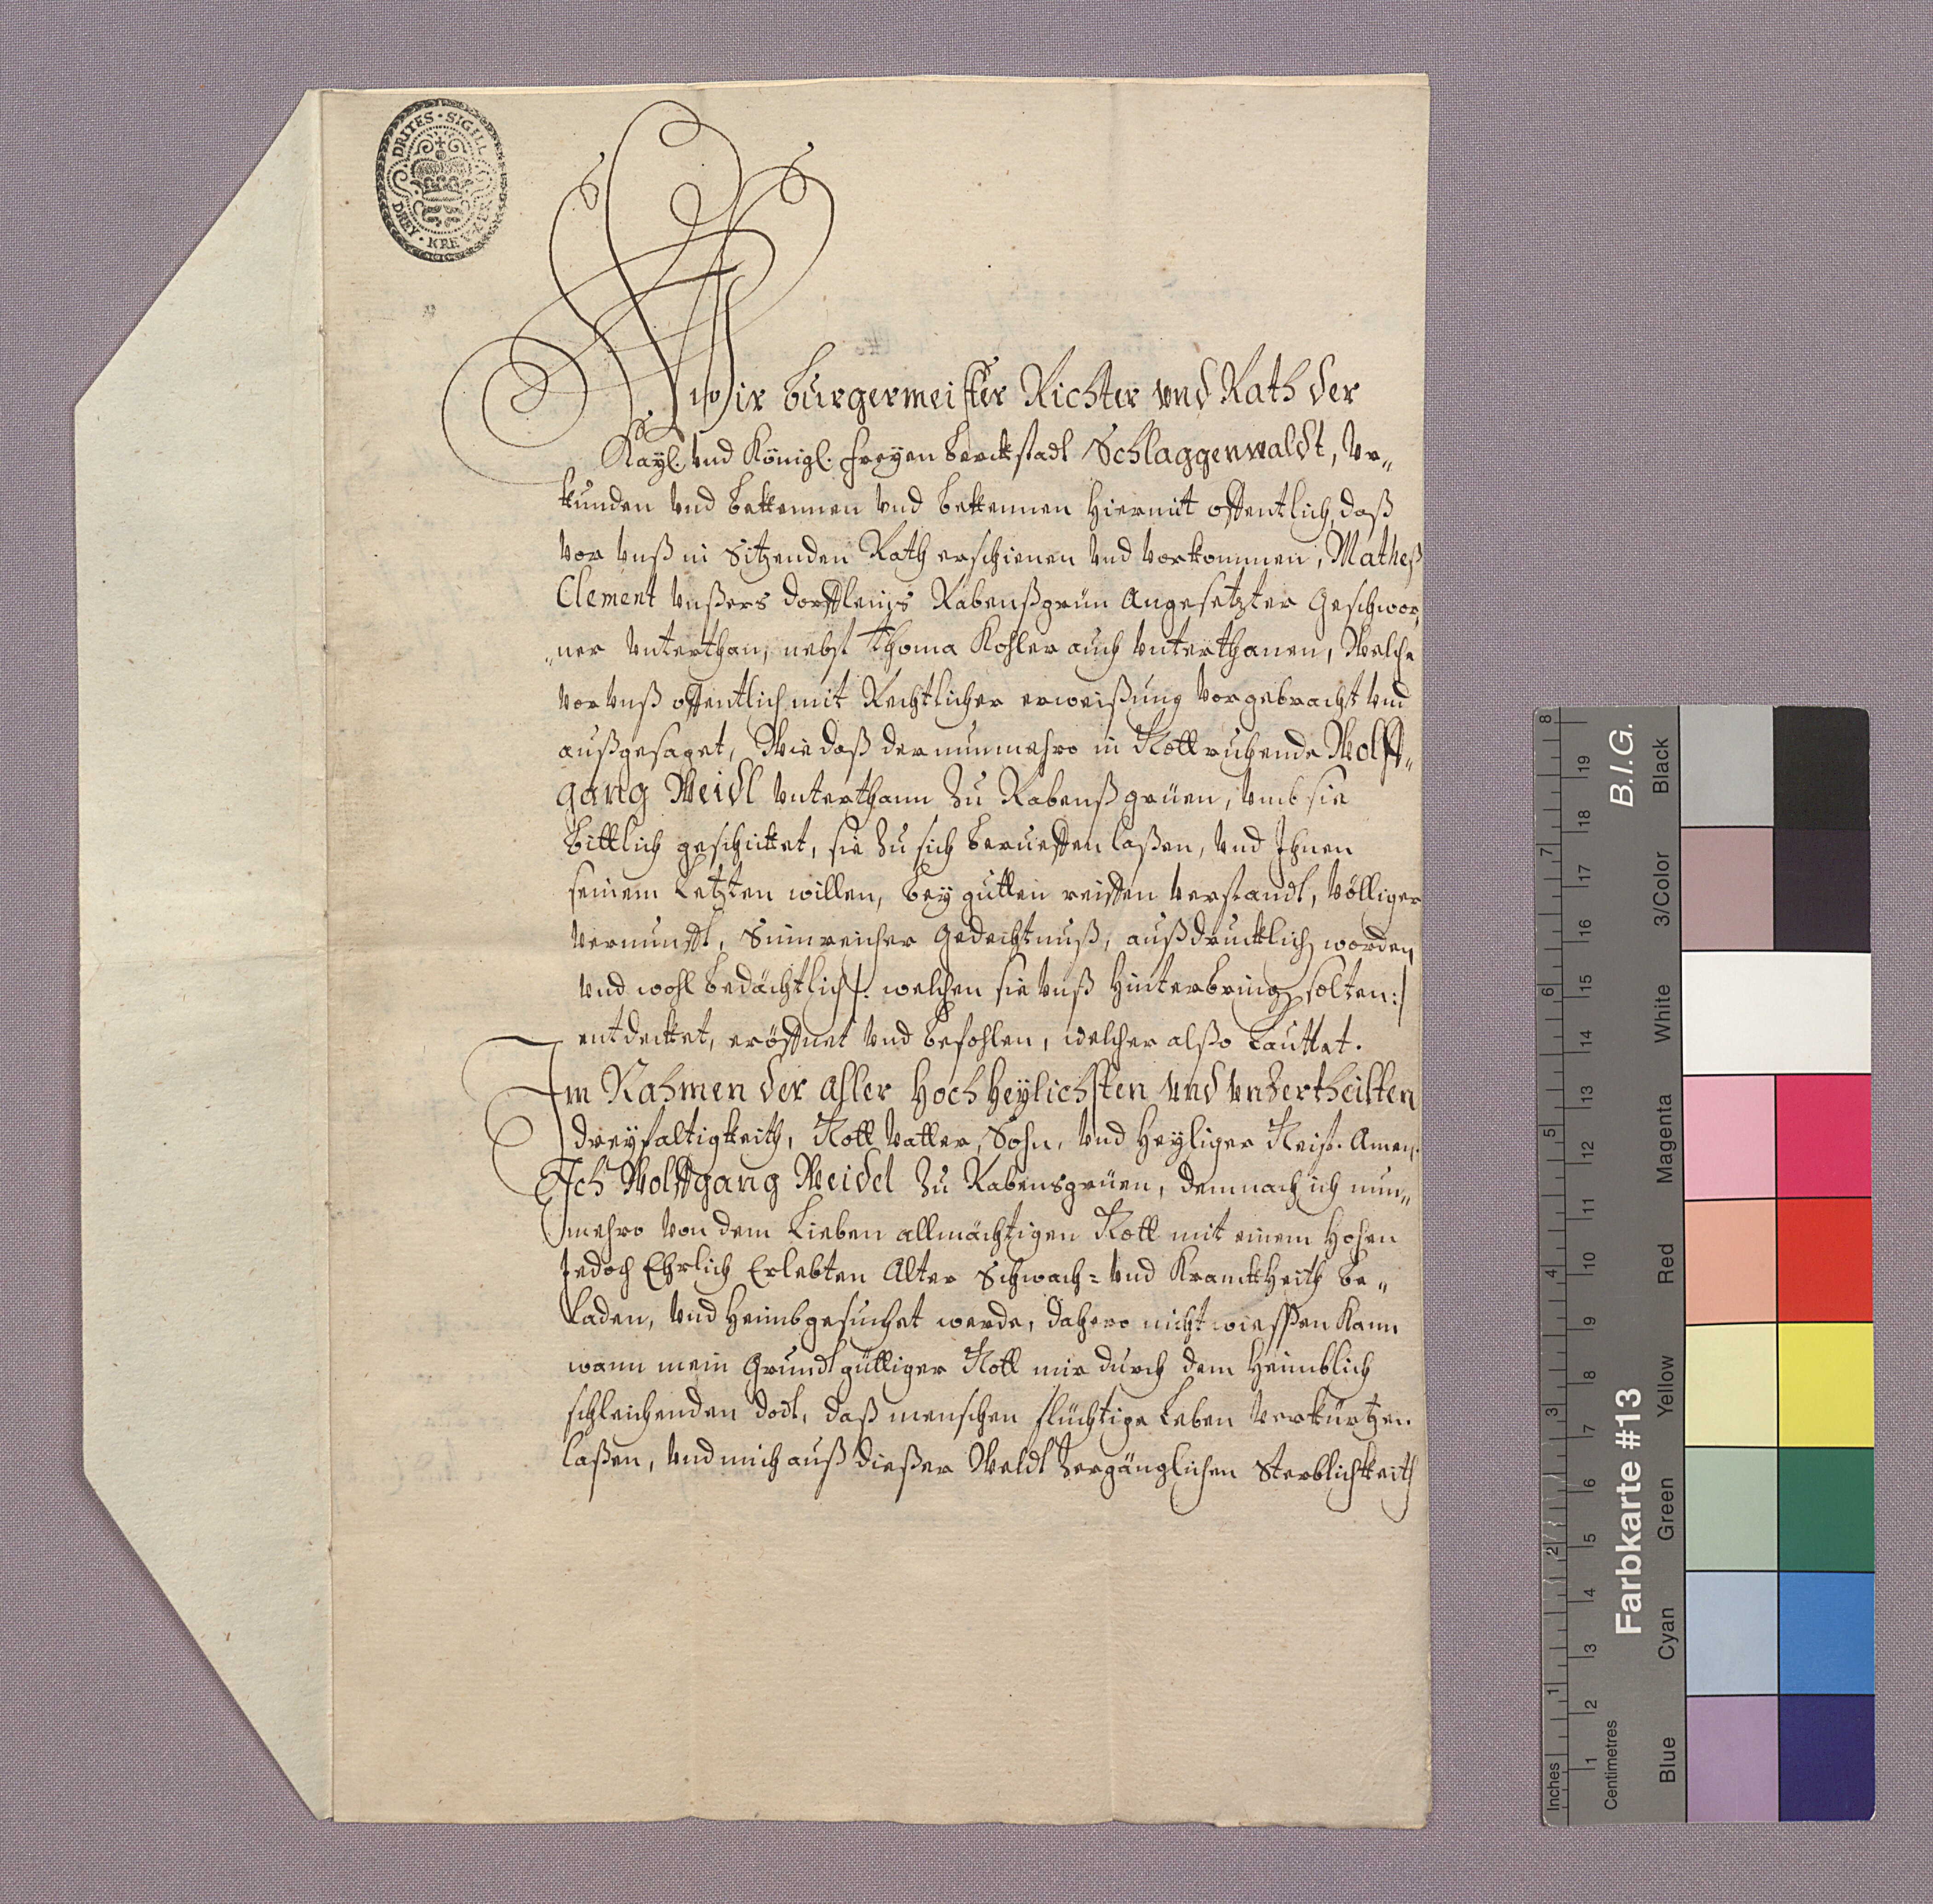 DRITES · SIGILL
DREY · KREVZER
Wir Burgermeister Richter und Rath der
Kayl. und Königl. freyen Berckstadt Schlaggenwaldt, Ur„
kunden und bekkennen und bekkennen hiermit offentlich, daß
vor unß in Sitzenden Rath erschienen und vorkommen, Matheß
Clement unßers dorfflein̄s Rabenßgrün Angesetzter Geschwor„
„ner unterthan, nebst Thoma Kohler auch unterthanen, Welche
vor unß offentlich mit Rechtlicher erweißung vorgebracht und
außgesaget, Wie daß der nunmehro in Gott ruhende Wolff„
gang Weidl unterthann zu Rabenßgrüen, umb sie
bittlich geschicket, sie zu sich berueffen laßen, und Ihnen
seinem Letzten willen, bey gutten reiffen verstandt, völliger
vernunfft, Sinnreicher Gedechtnuß, außdrucklich worden,
und wohl bedächtlich /: welchen sie unß hinterbringen solten:/
entdecket, eröffnet und befohlen, welcher alßo Lauttet.
Im Nahmen der aller Hoch Heylichsten und unzertheilten
dreyfaltigkeith, Gott Vatter, Sohn, und Heyliger Geist. Amen.
Ich Wolffgang Weidel zu Rabensgrüen, demnach ich nun„
mehro von dem Lieben allmächtigen Gott mit einem hohen
Jedoch Ehrlich Erlebten Alter Schwach= und Kranckheith be„
laden, und heimbgesuchet werde, dahero nicht wiessen kann
wann mein Grundtgüttiger Gott mir durch dem heimblich
schleichenden dodt, daß menschen flüchtige Leben verkürtzen
laßen, und mich auß dießer Weldt zergänglichen Sterblichkeith
8 7 6 5 4 3 2 1
Inches
19 18 17 16 15 14 13 12 11 10 9 8 7 6 5 4 3 2 1
Centimetres
Farbkarte #13
B.I.G.
Black
3/Color
White
Magenta
Red
Yellow
Green
Cyan
Blue